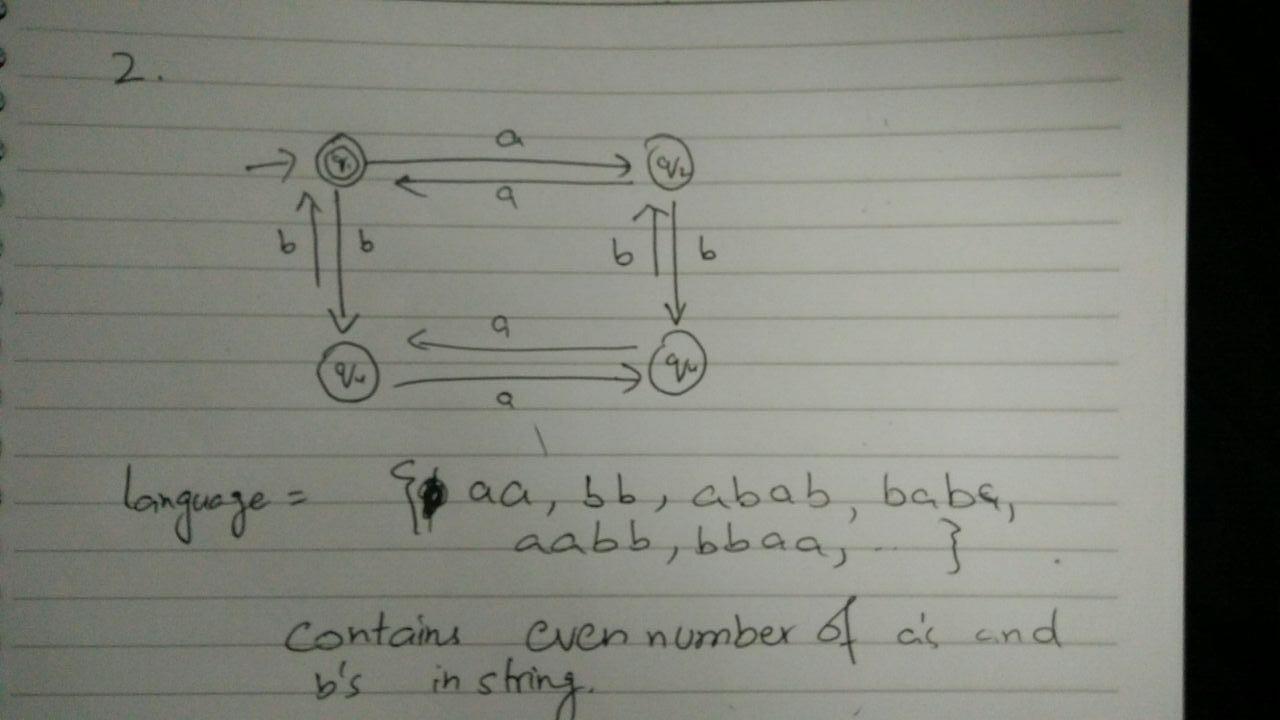 2.
a
q₂
a
b
b
b
b
a
a
language = { aa, bb, abab, baba,
aabb, bbaa, .. }
Contains even number of a's and
b's in string.